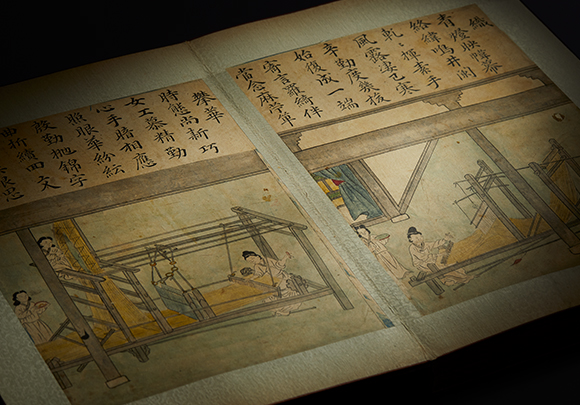 織
青燈映幃幕
絡緯鳴井
軋軋揮素手
風露凄已寒
辛勤度幾梭
始復成一端
寄言羅綺伴
當念麻苧單
攀華
時態尚新巧
女工慕精勤
心手暗相應
照眼華紛紜
殷勤挑錦字
曲折續回文
限思